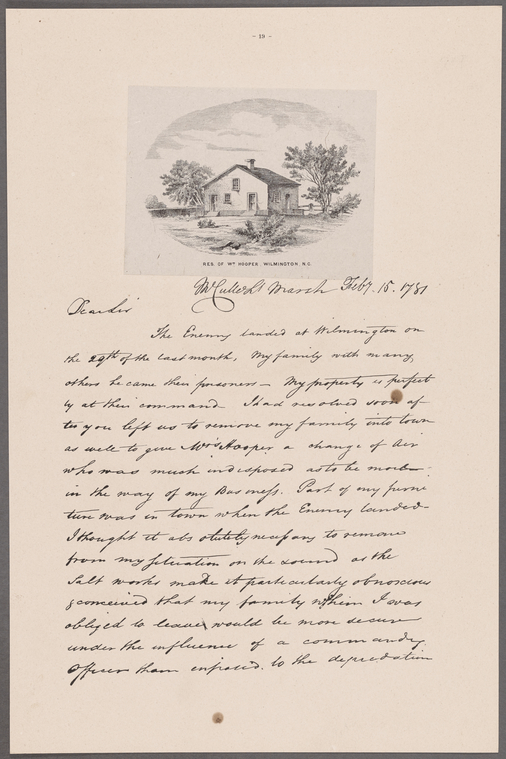 - 19 -
RES. OF Wm HOOPER, WILMINGTON, N.C.
McCullochs Marsh Feby. 15. 1781
Dear Sir
The Enemy landed at Wilmington on
the 29th of the last month, My family with many
others be came their prisoners - My property is perfect
ly at their command - I had resolved soon af-
ter you left us to remove my family into town
as well to give Mrs Hooper a change of Air
who was much indisposed as to be more
in the way of my Business. Part of my furni
ture was in town when the Enemy landed -
I thought it absolutely necessary to remove
from my situation on the sound as the
Salt works made it particularly obnoxious
& conceived that my family whom I was
obliged to leave, would be more secure
under the influence of a commandg.
Officer than exposed to the depredation